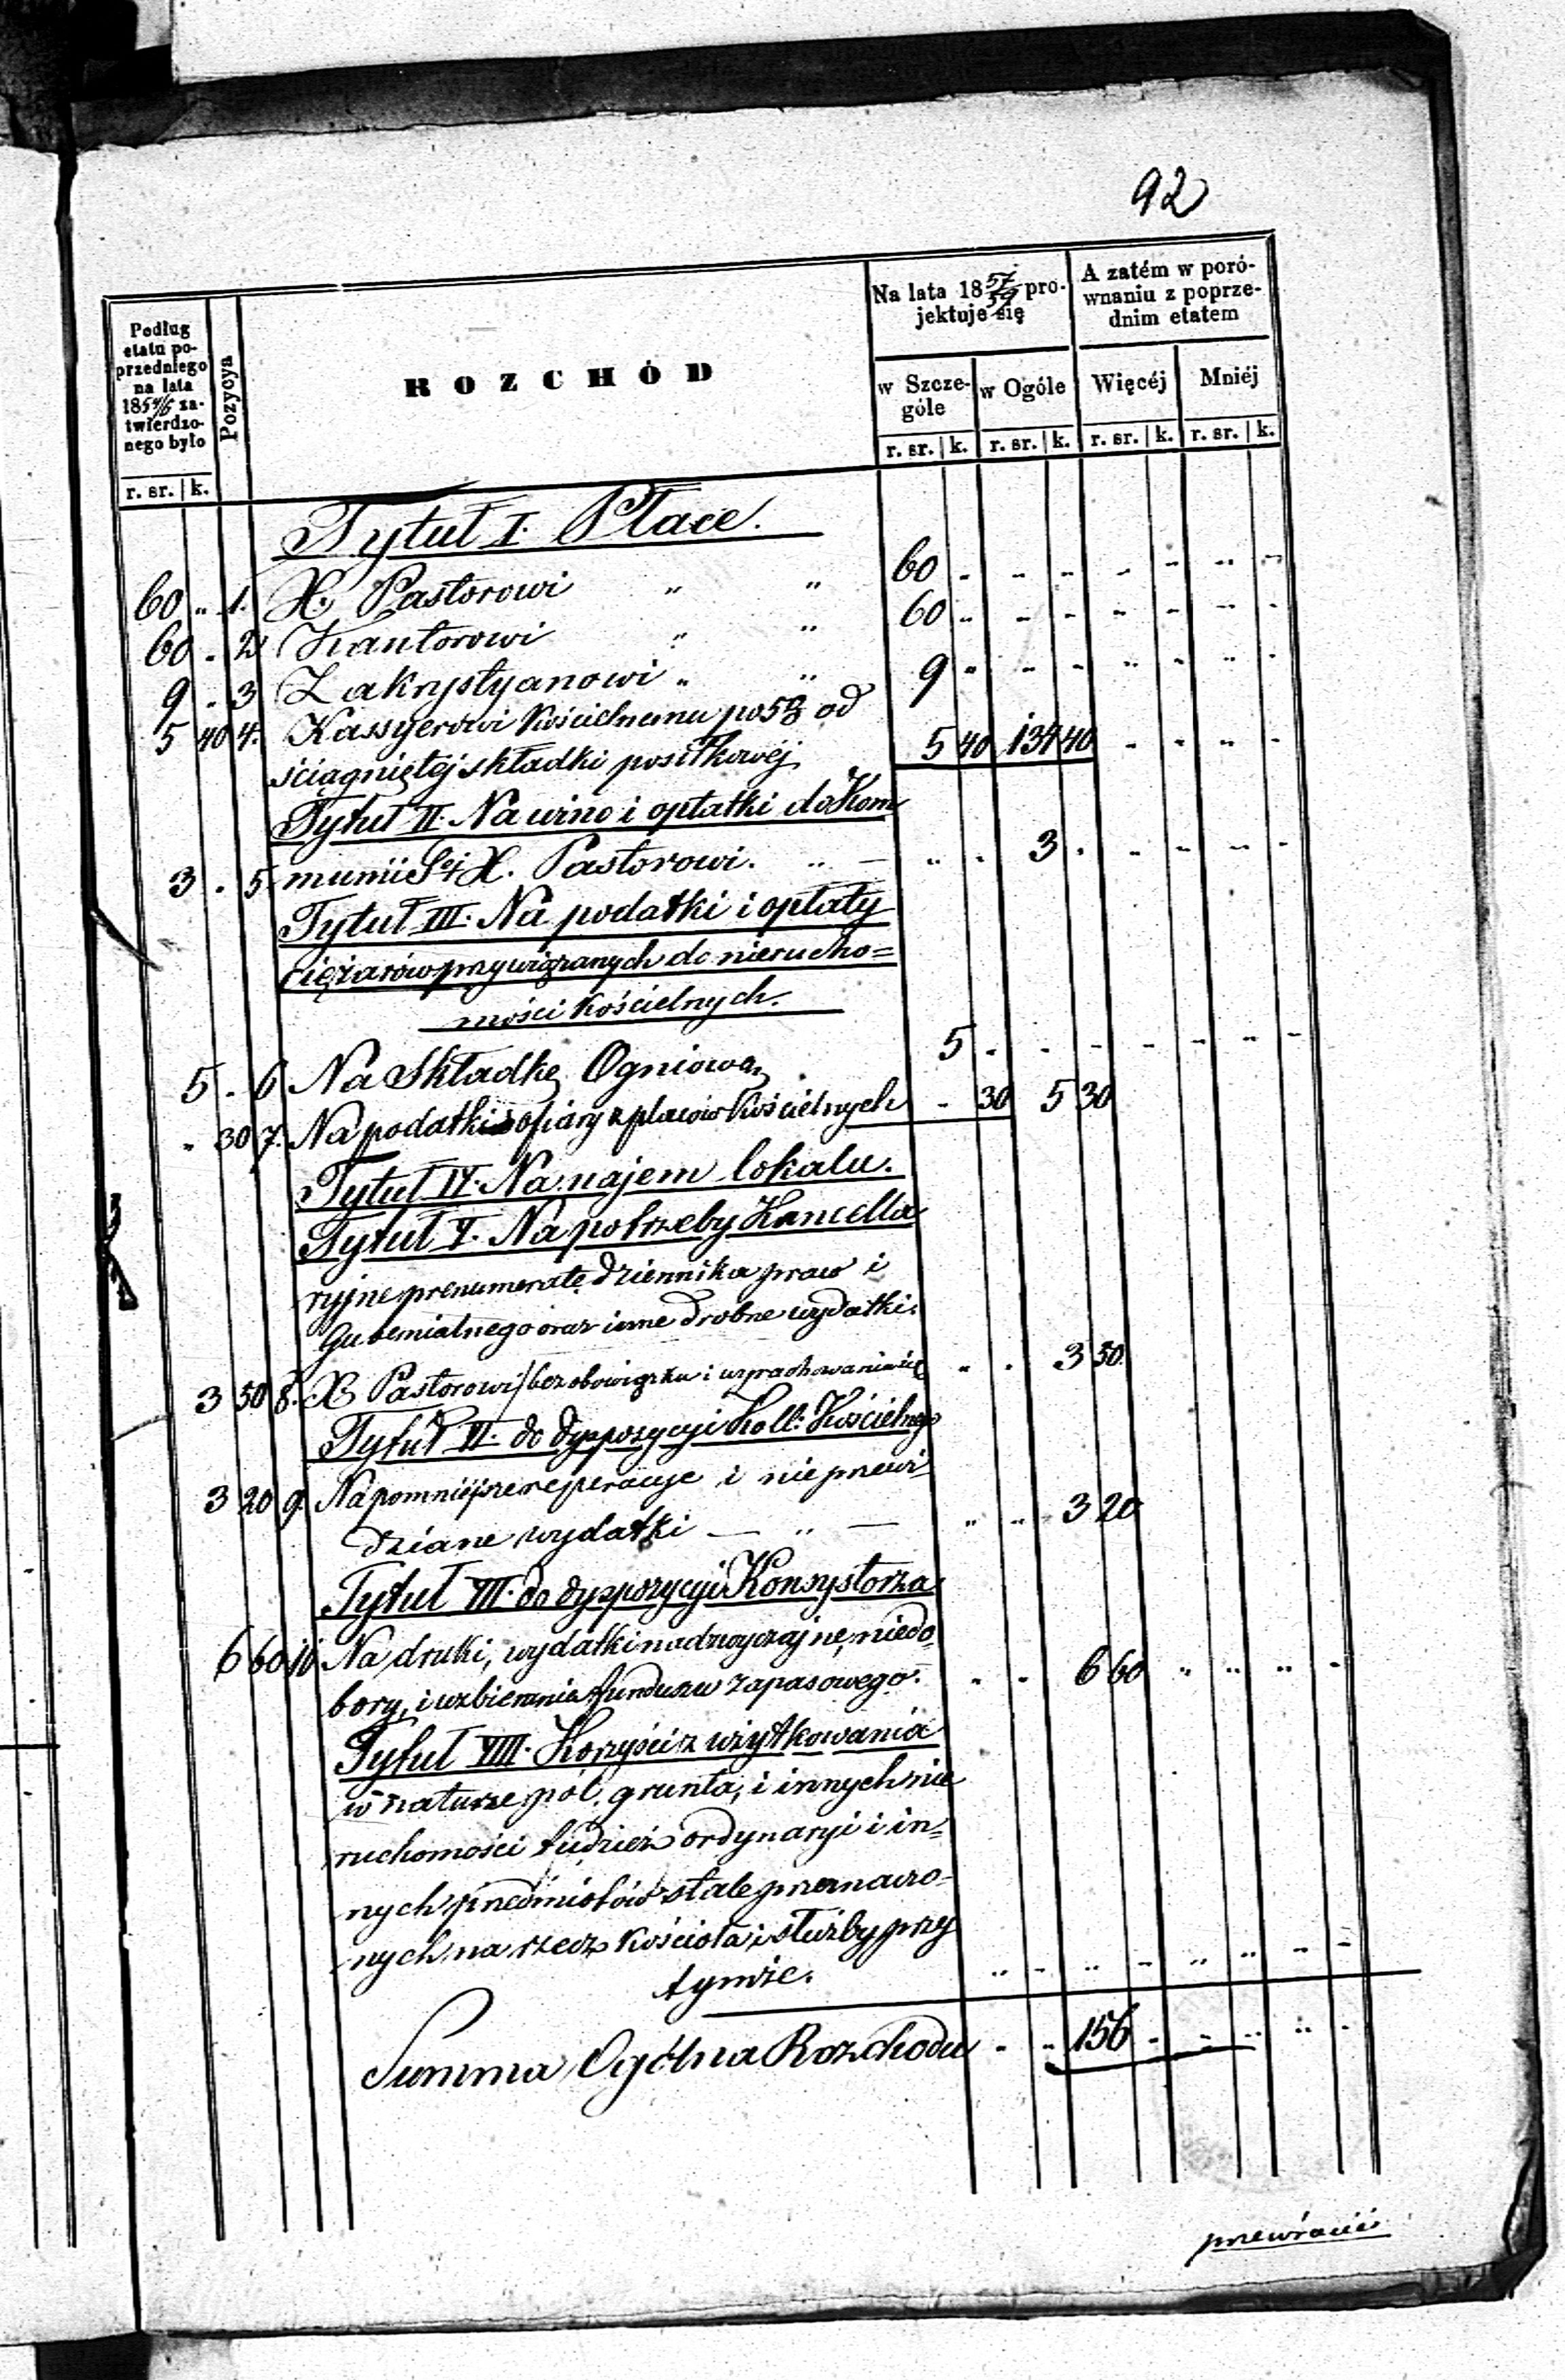 92
Podług
etatu po-
przedniego
na lata
185 4/6 za-
twierdzo-
nego było
r. sr. | k.
Pozycya
ROZCHÓD
Na lata 18 57/59 pro-
jektuje się
w Szcze-
góle
r. sr. | k.
w Ogóle
r. sr. | k.
A zatém w poró-
wnaniu z poprze-
dnim etatem
Więcéj
r. sr. | k.
Mniéj
r. sr. | k.
Tytuł I. Płace.
60 " 1. X. Pastorowi " " 60 - - - - - " -
60 - 2 Kantorowi " " 60 - - - - - " -
9 - 3 Zakrystyanowi " " 9 - - - " - " -
5 40 4. Kassyerowi kościelnemu po 5% od
ściągniętej składki posiłkowéj 5 40 134 40 - - - -
Tytuł II. Na wino i opłatki do Kom
3 - 5. munii Sej X. Pastorowi. " — " - 3 - - - - -
Tytuł III. Na podatki i opłaty
ciężarów przywiązanych do nierucho=
mości kościelnych.
5 - 6 Na Składkę Ogniową 5 - - - - - - -
" 30 7. Na podatki ofiary z placów kościelnych - 30 5 30
Tytuł IV. Na najem lokalu.
Tytuł V. Na potrzeby Kancella
ryjne prenumeratę dziennika praw i
Gubernialnego oraz inne drobne wydatki.
3 50 8. X Pastorowi / bez obowiązku wyrachowania się " - 3 50
Tytuł VI. do dyspozycyi Koll: Kościelnego
3 20 9. Na pomniejsze reperacye i nieprzewi-
dziane wydatki — " — " " 3 20
Tytuł VII. do dyspozycyi Konsystorza
6 60 10 Na druki, wydatki nadzwyczajne, niedo-
bory, i uzbierania funduszu zapasowego. - - 6 60 " " " -
Tytuł VIII. Korzyści z użytkowania
w naturze pól, grunta, i innych nie
ruchomości tudzież ordynaryi i in=
nych przedmiotów stale przeznaczo-
nych na rzecz kościoła i służby przy
tymże. " - " - " " - -
Summa Ogólna Rozchodu - " 156 - - " " -
przewrócić